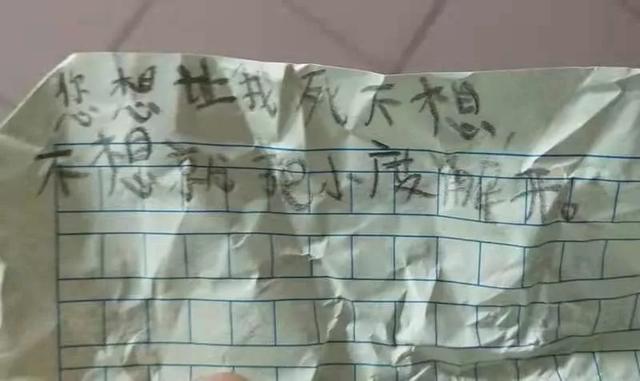 您想让我死不想,
不想就把小度解开。